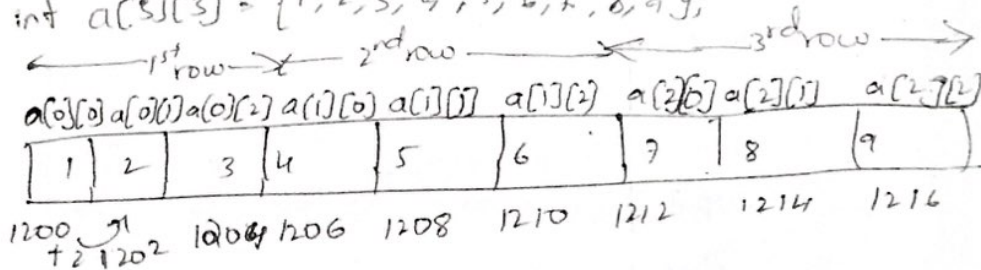 int a[3][3] = {1, 2, 3, 4, 5, 6, 7, 8, 9};
1st row 2nd row 3rd row
a[0][0] a[0][1] a[0][2] a[1][0] a[1][1] a[1][2] a[2][0] a[2][1] a[2][2]
1 2 3 4 5 6 7 8 9
1200 1204 1206 1208 1210 1212 1214 1216
+2 1202